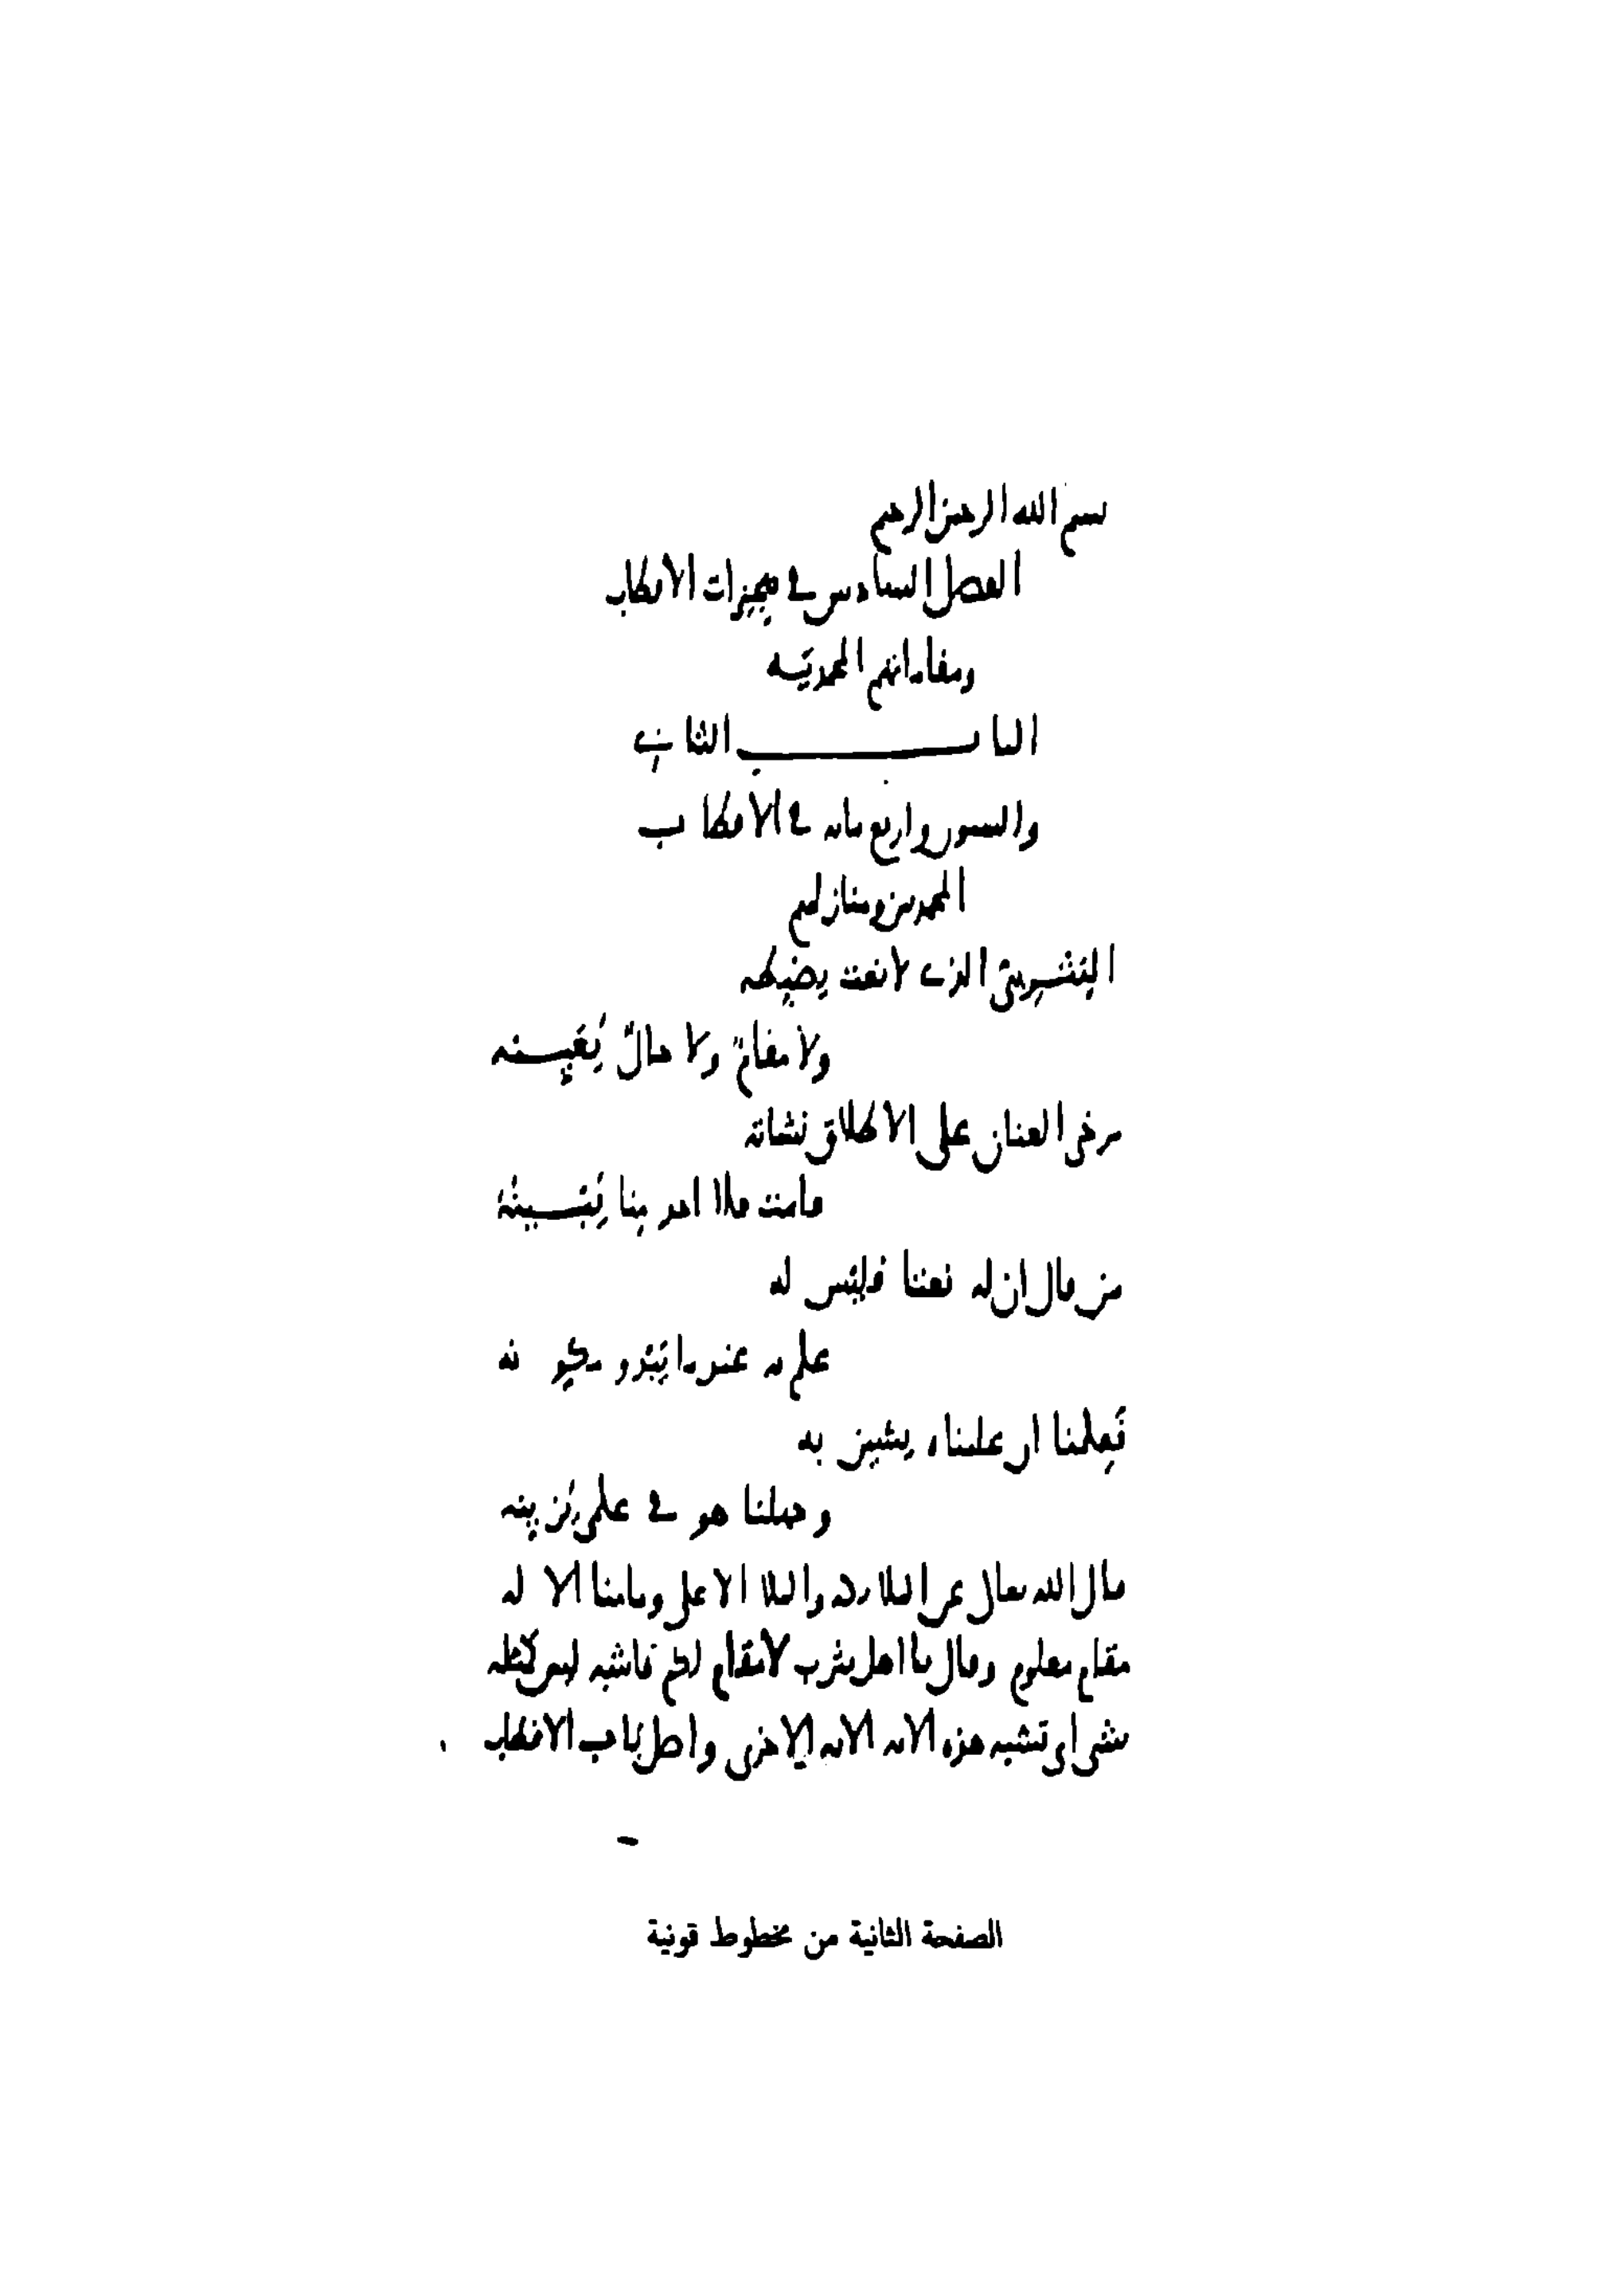 بسم الله الرحمن الرحيم
الفصل السادس في هجيرات الاقطاب
ومقاماتهم المحمدية
الباب الثاني
والستون واربع مائه في الاقطاب
المحمدين ومنازلهم
اليثربي الذي لا نعت يضبطه
ولا مقامٌ ولا حالٌ يُعَيِّنه
مرخى العنان على الاطلاق نشاته
قامت فلا احد منا يُبَيِّنُهُ
من قال ان له نعتا فليس له
علم به عند ما يَبْدو مكونه
فعِلمنا ان علمناه يشين به
وجهلنا هو في علمي يُزَينه
قال الله تعالى عن الملائكة والملا الاعلى وما منا الا له
مقام معلوم وقال يا اهل يثرب لا مقام لكم فاشبه ليس كمثله
شي اي تشبه هذه الايه الايه الاخرى واصل باب الاقطاب
الصفحة الثانية من مخطوط قونية